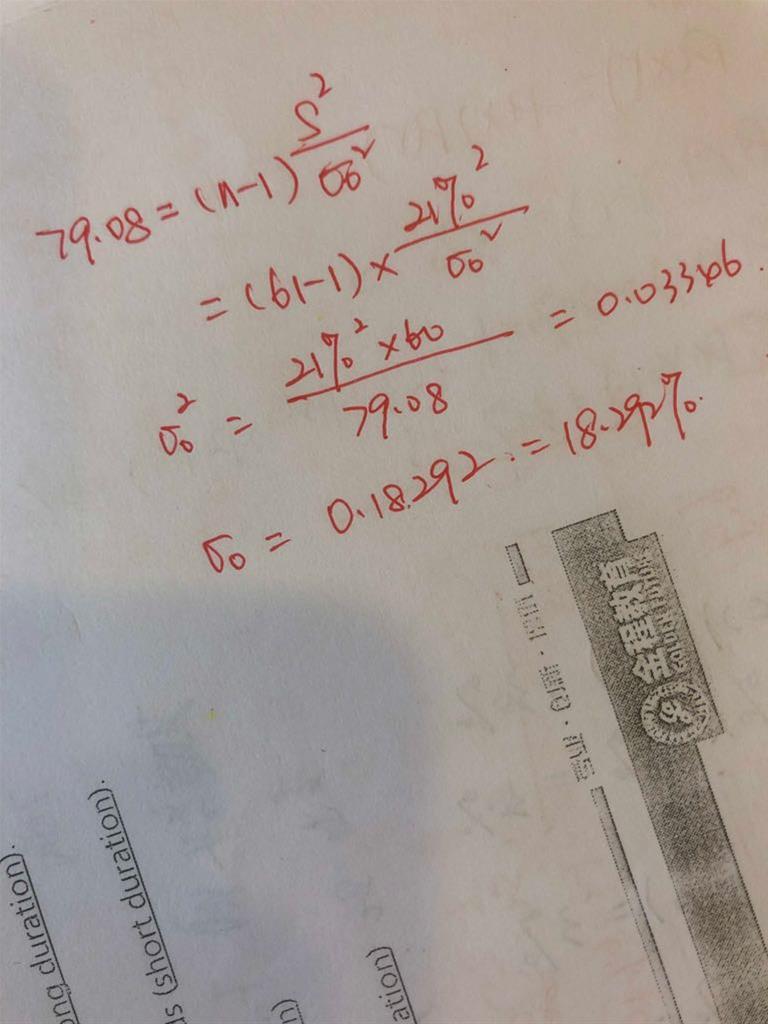 79.08 = (n-1) S²/σ₀²
= (61-1) × 21%²/σ₀²
σ₀² = 21%² × 60 / 79.08 = 0.03346.
σ₀ = 0.18292. = 18.292%.
金程教育
ong duration).
s (short duration).
n)
ation)